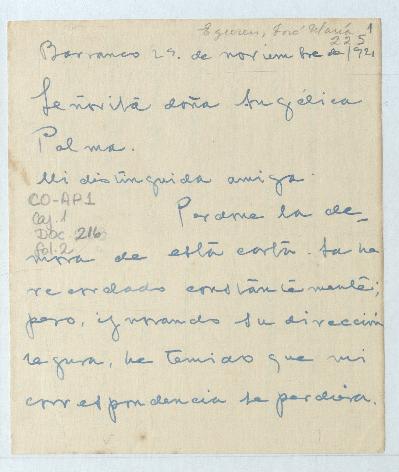 Eguren, José María 1
225
Barranco 29. de noviembre de/921
Señorita doña Angélica
Palma.
Mi distinguida amiga.
CO-AP1
Caj. 1
Doc. 216
Fol. 2
Perdone la de_
mora de esta carta. La he
recordado constantemente;
pero, ignorando su dirección
segura, he temido que mi
correspondencia se perdiera.